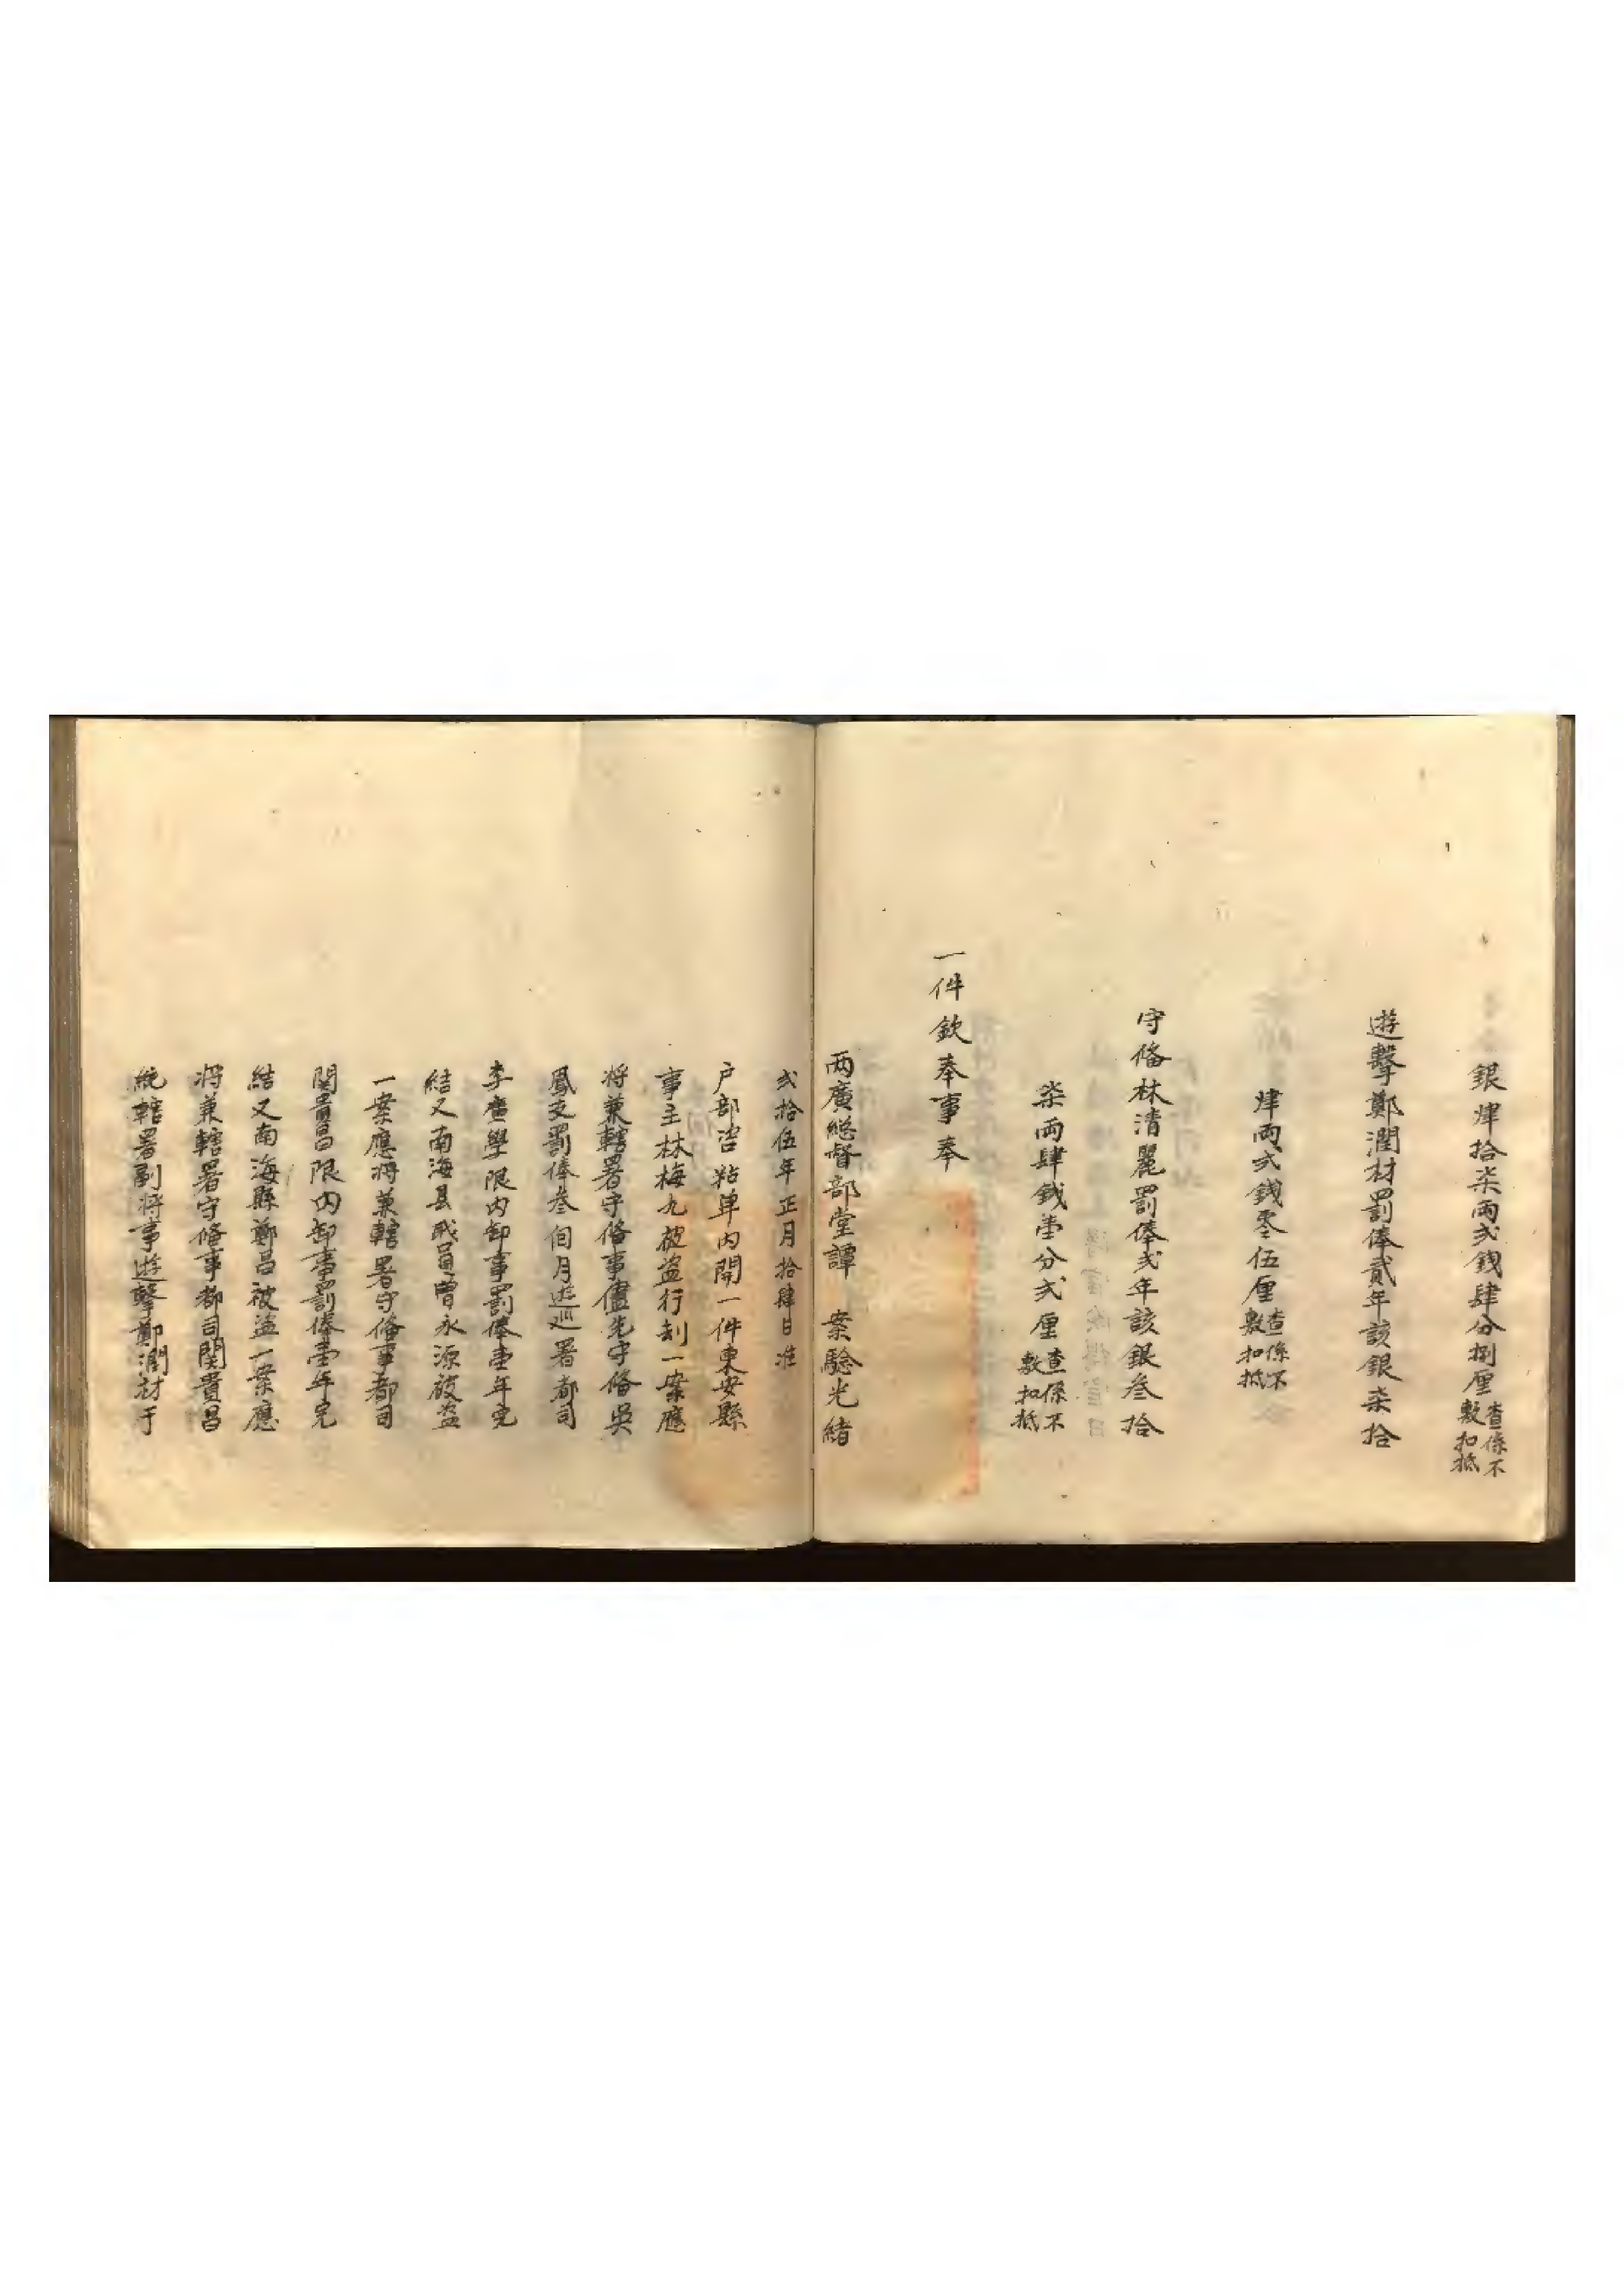 銀肆拾柒両弍錢肆分捌厘查係不敷扣抵
遊擊鄭潤材罰俸貳年該銀柒拾
肆両弍錢零伍厘查係不敷扣抵
守俻林清麗罰俸弍年該銀叁拾
柒両肆錢壹分弍厘查係不敷扣抵
一件欽奉事奉
両廣總督部堂譚 案驗光緒
弍拾伍年正月拾肆日准
户部咨粘单内開一件東安縣
事主林梅九被盗行刦一案應
将兼轄署守俻事儘先守俻吳
鳳文罰俸叁個月遊巡署都司
李廣學限内卸事罰俸壹年完
結又南海县職員曾永源被盗
一案應将兼轄署守俻事都司
関貴昌限内卸事罰俸壹年完
結又南海縣鄭昌被盗一案應
将兼轄署守俻事都司関貴昌
統轄署副将事遊擊鄭潤材于